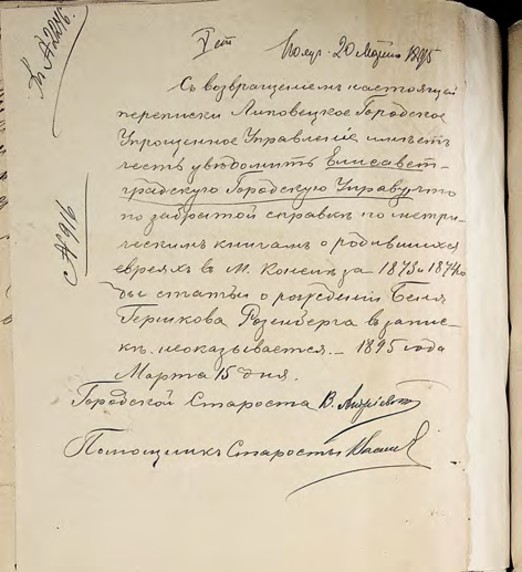 V ст Получ. 20 Марта 1895
Съ возвращеніемъ настоящей
переписки Липовецкое Городское
Упрощенное Управленіе имѣетъ
честь увѣдомить Елисавет-
градскую Городскую Управу, что
по забранной справкѣ по метри-
ческимъ книгамъ о родившихся
евреяхъ в М. за 1873 и 1874 го
ды статьи о рожденіи Беня
Гершкова Розенберга в запис-
кѣ неоказывается. – 1895 года
Марта 15 дня.
Городской Староста В.
Помощникъ Старосты
№ 916